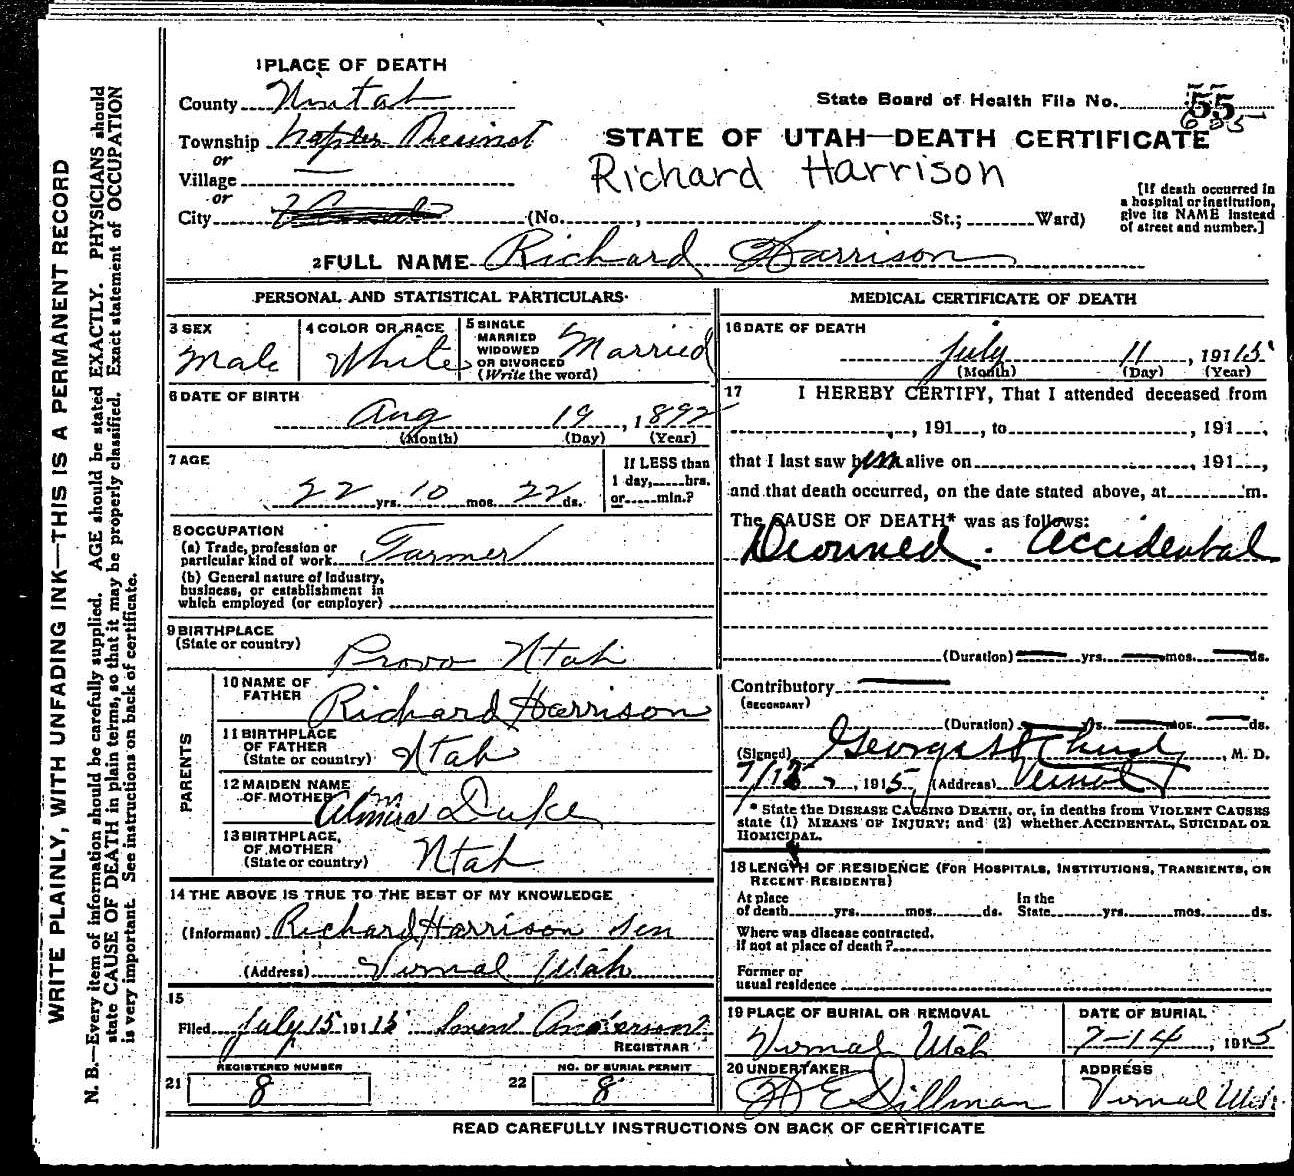 1 PLACE OF DEATH
County Uintah
State Board of Health File No. 55
655
Township Naples Precinct
or
STATE OF UTAH—DEATH CERTIFICATE
Richard Harrison
Village
or
City (No. , St.; Ward)
[If death occurred in
a hospital or institution,
give its NAME instead
of street and number.]
2 FULL NAME Richard Harrison
PERSONAL AND STATISTICAL PARTICULARS
3 SEX
Male
4 COLOR OR RACE
White
5 SINGLE
MARRIED
WIDOWED
OR DIVORCED
(Write the word)
Married
6 DATE OF BIRTH
Aug 19, 1892
(Month) (Day) (Year)
7 AGE
22 yrs. 10 mos. 22 ds.
If LESS than
1 day, hrs.
or min.?
8 OCCUPATION
(a) Trade, profession or
particular kind of work Farmer
(b) General nature of Industry,
business, or establishment in
which employed (or employer)
9 BIRTHPLACE
(State or country)
Provo Utah
PARENTS
10 NAME OF
FATHER
Richard Harrison
11 BIRTHPLACE
OF FATHER
(State or country) Utah
12 MAIDEN NAME
OF MOTHER Almira Duke
13 BIRTHPLACE,
OF MOTHER
(State or country) Utah
14 THE ABOVE IS TRUE TO THE BEST OF MY KNOWLEDGE
(Informant) Richard Harrison Sen
(Address) Vernal Utah
15
Filed July 15 1915 Anderson
REGISTRAR
REGISTERED NUMBER
21 8
NO. OF BURIAL PERMIT
22 8
MEDICAL CERTIFICATE OF DEATH
16 DATE OF DEATH
July 11, 1915
(Month) (Day) (Year)
17 I HEREBY CERTIFY, That I attended deceased from
, 191 , to , 191 ,
that I last saw him alive on , 191 ,
and that death occurred, on the date stated above, at m.
The CAUSE OF DEATH* was as follows:
Drowned. Accidental
(Duration) yrs. mos. ds.
Contributory
(SECONDARY)
(Duration) yrs. mos. ds.
(Signed) George , M. D.
7/13, 1915 (Address) Vernal
* State the DISEASE CAUSING DEATH, or, in deaths from VIOLENT CAUSES
state (1) MEANS OF INJURY; and (2) whether ACCIDENTAL, SUICIDAL OR
HOMICIDAL.
18 LENGTH OF RESIDENCE (FOR HOSPITALS, INSTITUTIONS, TRANSIENTS, OR
RECENT RESIDENTS)
At place
of death yrs. mos. ds.
In the
State yrs. mos. ds.
Where was disease contracted,
if not at place of death?
Former or
usual residence
19 PLACE OF BURIAL OR REMOVAL
Vernal Utah
DATE OF BURIAL
7-14, 1915
20 UNDERTAKER
Dillman
ADDRESS
Vernal Utah
READ CAREFULLY INSTRUCTIONS ON BACK OF CERTIFICATE
WRITE PLAINLY, WITH UNFADING INK—THIS IS A PERMANENT RECORD
N. B.—Every item of information should be carefully supplied. AGE should be stated EXACTLY. PHYSICIANS should
state CAUSE OF DEATH in plain terms, so that it may be properly classified. Exact statement of OCCUPATION
is very important. See instructions on back of certificate.